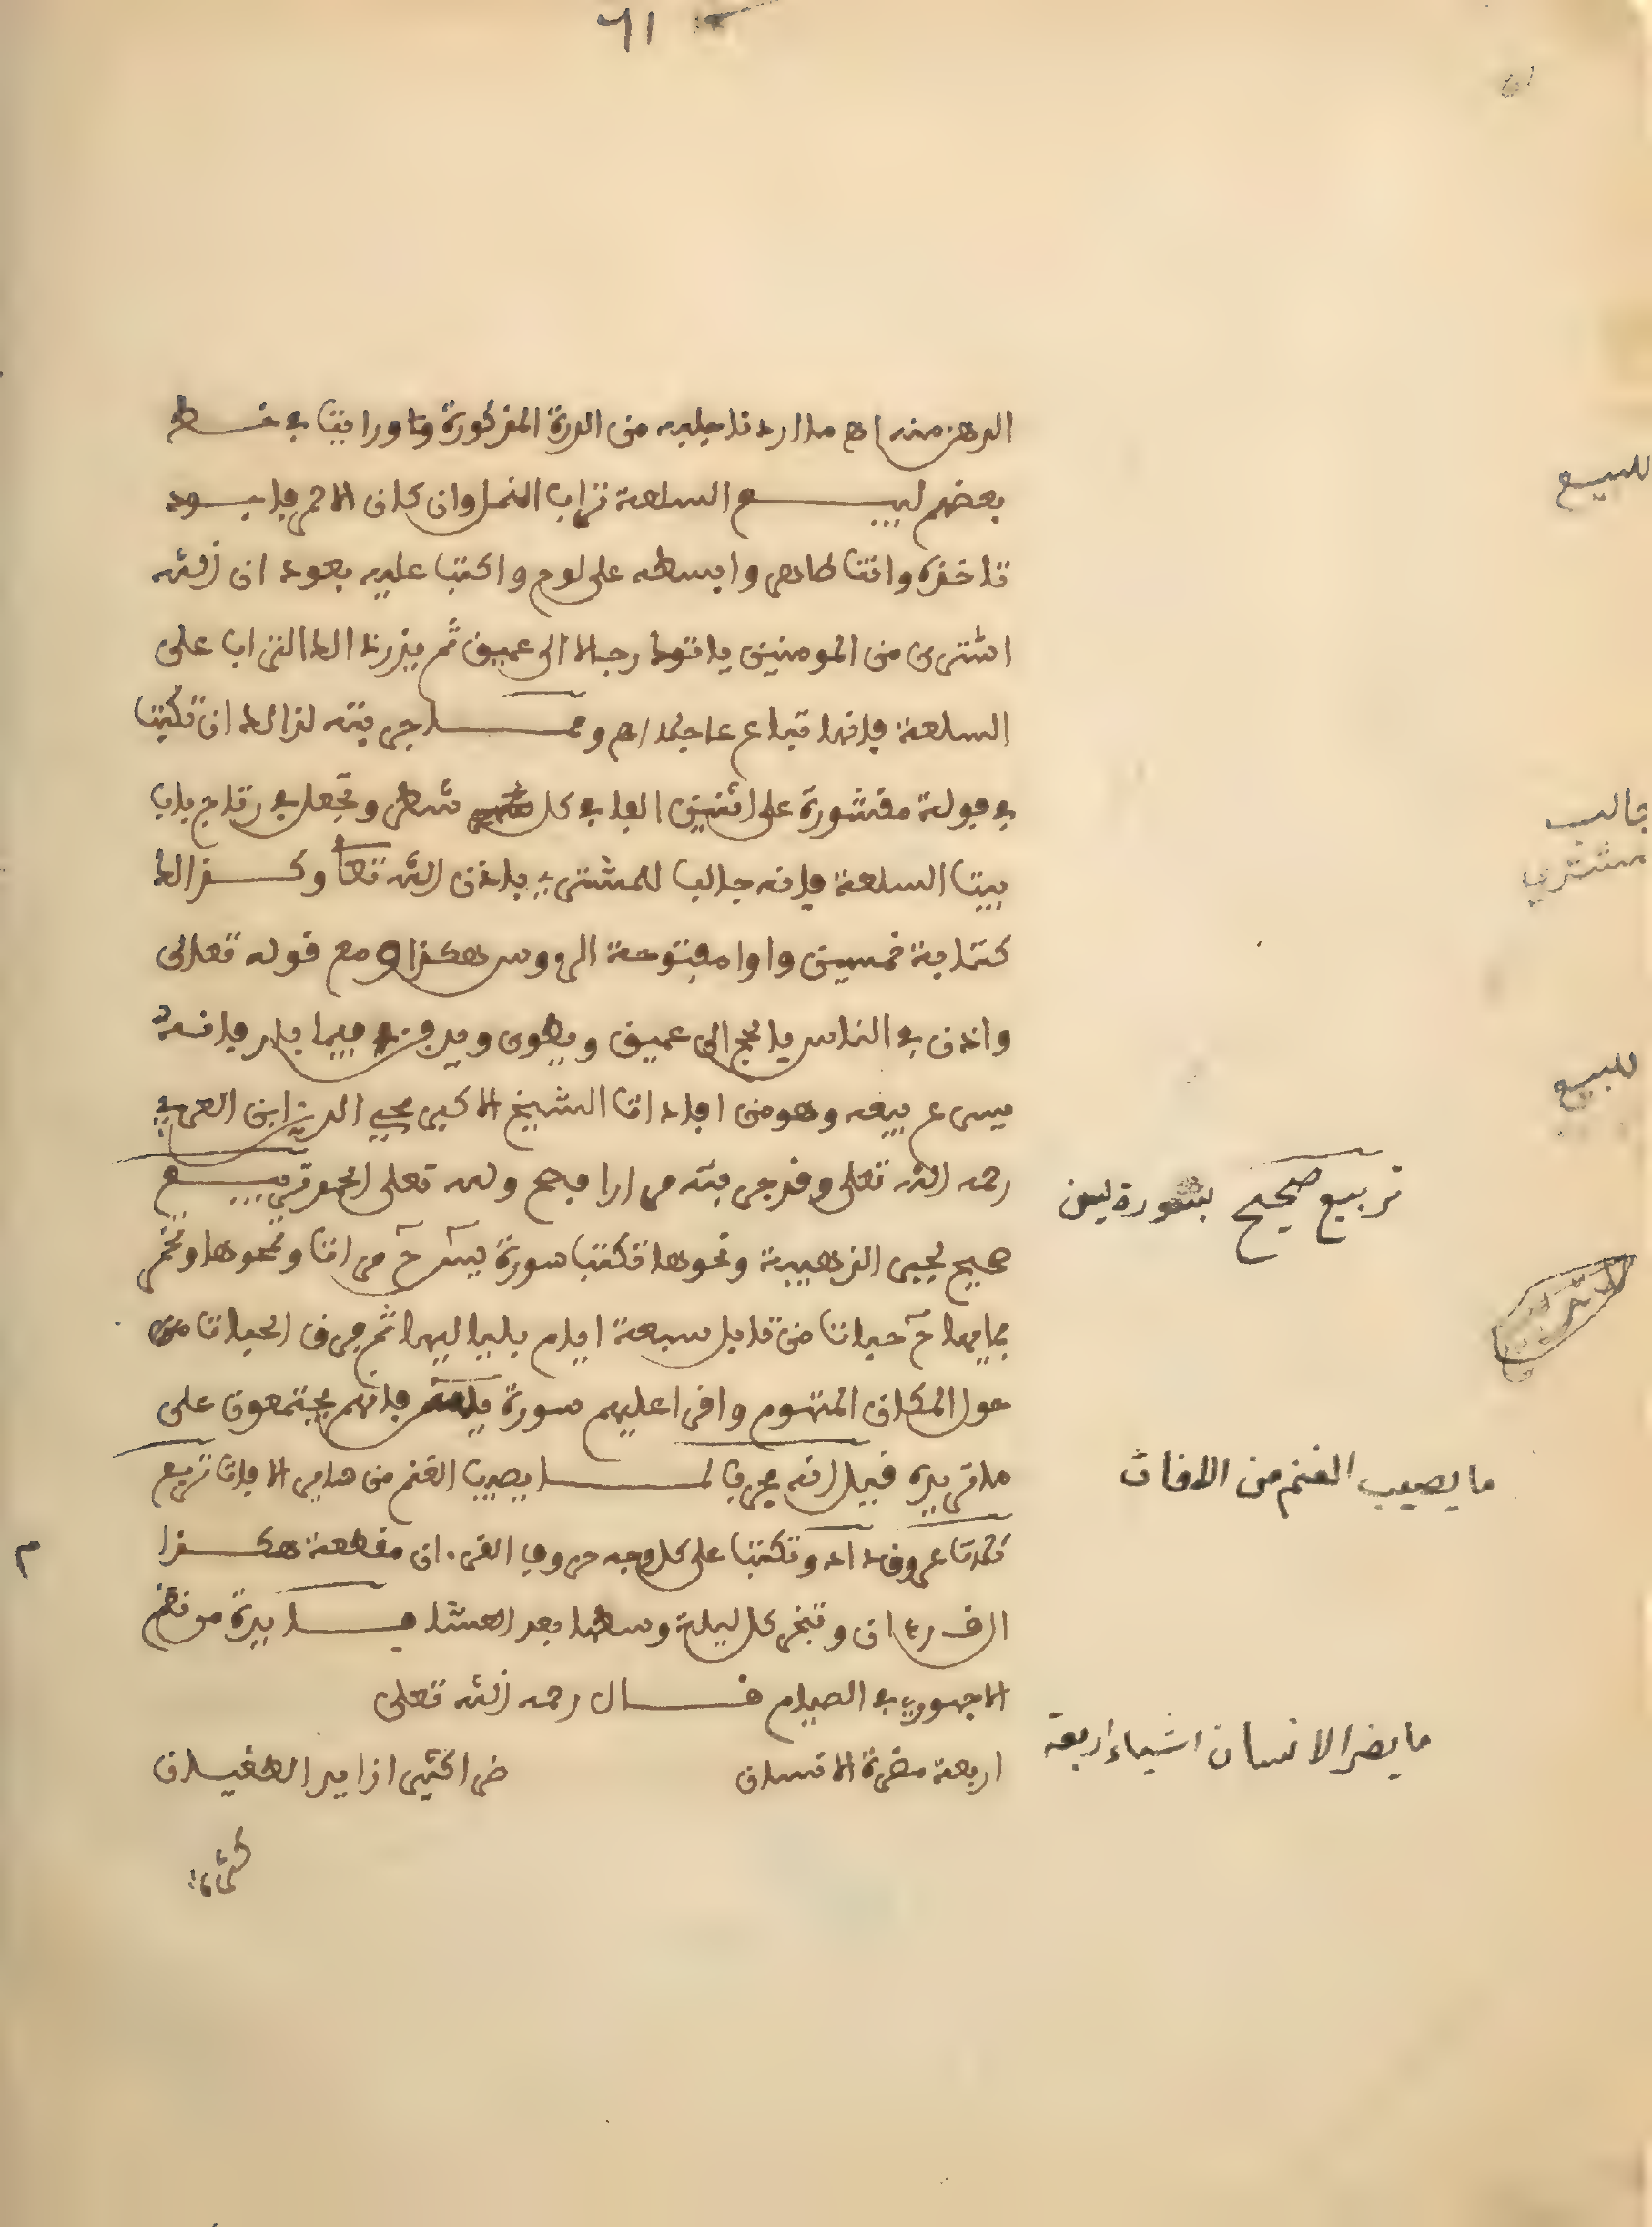 ٦١
الدهر منه اهـ ما اردنا جلبه من الدرة المذكورة ومما ورايت في خط
بعضهم لبيع السلعة تراب النمل وان كان الاحمر فاجود
تاخذه وانت طاهر وابسطه على لوح واكتب عليه بعود ان الله
اشترى من المومنين ياتوك رجالا الى عميق ثم يذر ذالك التراب على
السلعة فانها تباع عاجلا اهـ ومما جربته لذالك ان تكتب
في فولة مقشورة على اثنين الفا في كل شطر وتجعل في رتاج باب
بيت السلعة فانه جالب للمشتري باذن الله تعا وكذالك
كتابة خمسين واوا مفتوحة الروس هكذا و مع قوله تعالى
واذن في الناس بالحج الى عميق ويطوى ويدفن فيما بار فانه
يسرع بيعه وهو من افادات الشيخ الاكبر محيي الدين ابن العربي
رحمه الله تعلى وقد جربته مرارا فصح ولله تعلى الحمد تربيع
صحيح لجبر الذهيبة ونحوها تكتب سورة يس مرات وتمحوها وتخمر
بمايها حبات من تابل سبعة ايام بلياليها ثم فرق الحبات من
حول المكان المتهوم واقرا عليهم سورة فانهم يجتمعون على
ما تريده قيل انه مجرب لما يصيب الغنم من ساير الافات تربيع
ثلاث عروق داد وتكتب على كل وجه حروف القرءان مقطعة هكذا
ال ق ر ءا ن وتبخر كل ليلة وسطها بعد العشا فايدة من نظم
الاجهوري في الصيام قال رحمه الله تعلى
اربعة مضرة الانسان من اكثر ازا يد الطغيان
للبيع
جالب
مشتري
للبيع
تربيع صحيح بسورة يس
ما يصيب الغنم من الافات
م
ما يضر الانسان اشياء اربعة